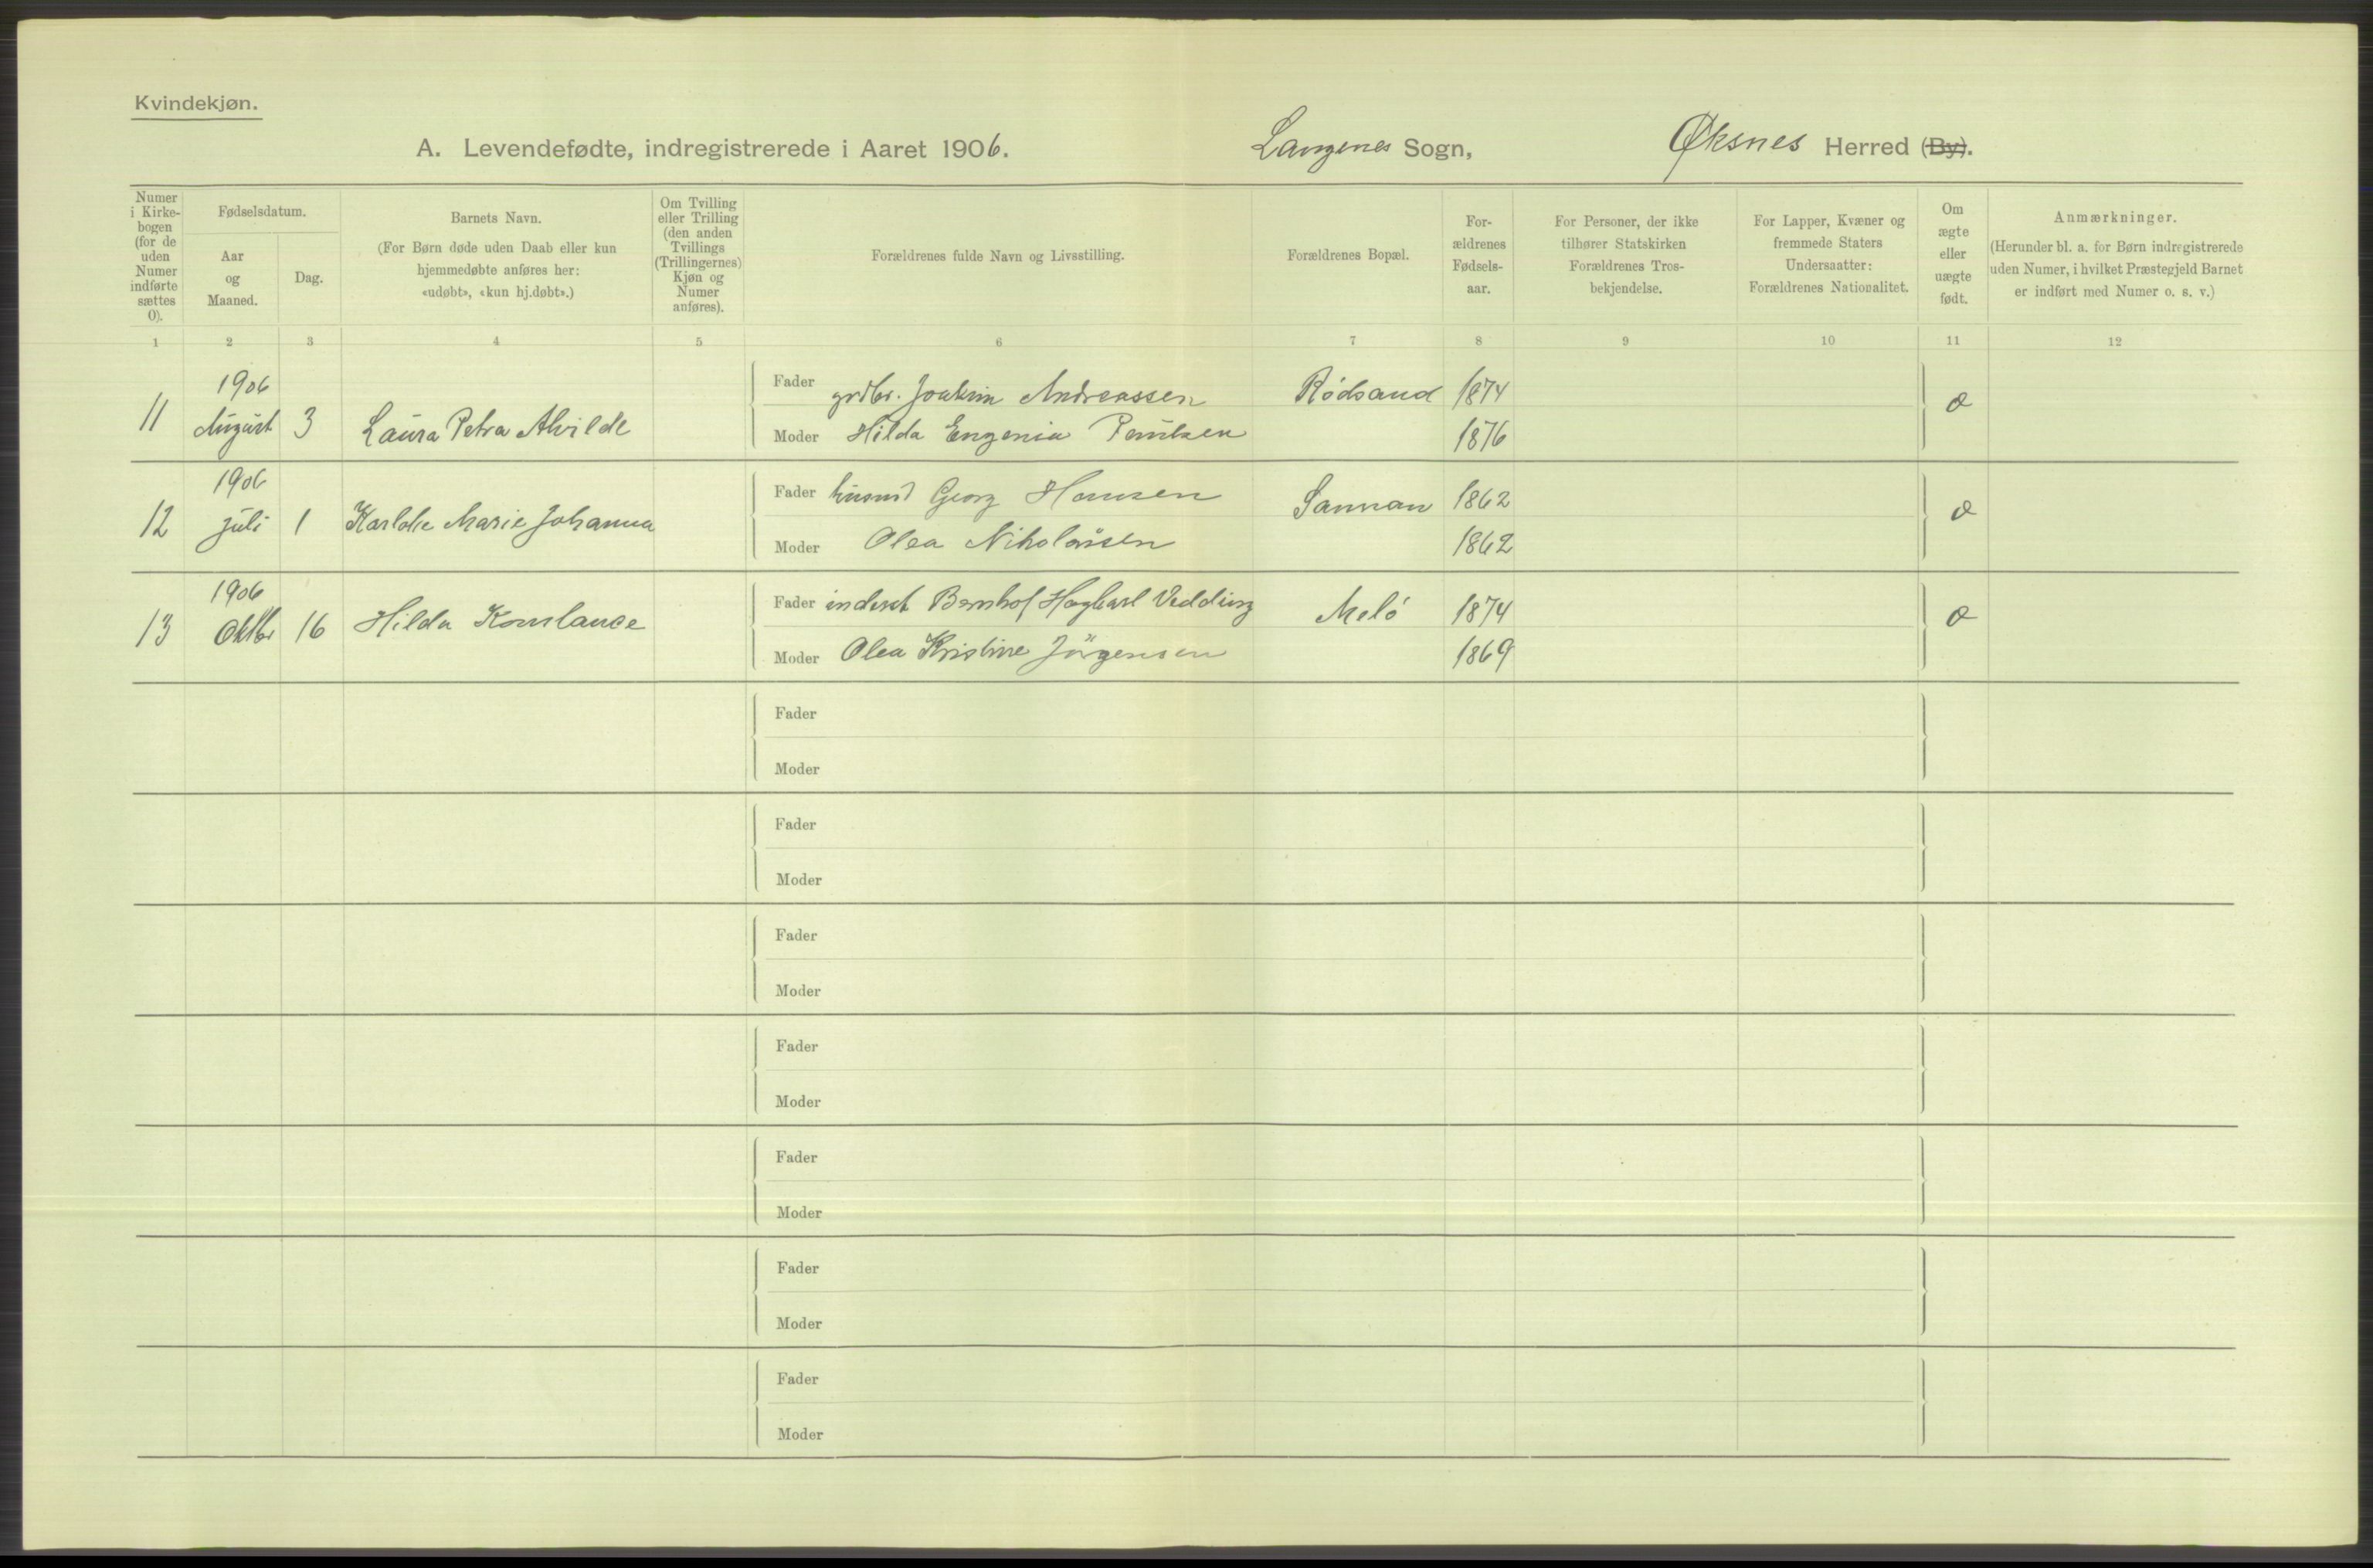 Kvindekjøn.
A. Levendefødte, indregistrerede i Aaret 1906. Langenes Sogn, Øksnes Herred (By).
Numer i Kirke-bogen (for de uden Numer indførte sættes 0).
Fødselsdatum.
Aar og Maaned.
Dag.
Barnets Navn.
(For Børn døde uden Daab eller kun
hjemmedøbte anføres her:
«udøbt», «kun hj.døbt».)
Om Tvilling
eller Trilling
(den anden
Tvillings
(Trillingernes)
Kjøn og
Numer
anføres).
Forældrenes fulde Navn og Livsstilling.
Forældrenes Bopæl.
For-
ældrenes
Fødsels-
aar.
For Personer, der ikke
tilhører Statskirken
Forældrenes Tros-
bekjendelse.
For Lapper, Kvæner og
fremmede Staters
Undersaatter:
Forældrenes Nationalitet.
Om
ægte
eller
uægte
født.
Anmærkninger.
(Herunder bl. a. for Børn indregistrerede
uden Numer, i hvilket Præstegjeld Barnet
er indført med Numer o. s. v.)
1 2 3 4 5 6 7 8 9 10 11 12
1906
11 August 3 Laura Petra Alvilde
Fader grdbr. Joakim Andreassen Rødsand 1874
Moder Hilda Eugenia Paulsen 1876
1906
12 Juli 1 Marie Johanna
Fader Georg Hansen Sannan 1862
Moder Olea Nikolaisen 1862
1906
13 Oktbr 16 Hilda Konstance
Fader inderst Hagbart Vedding Melø 1874
Moder Olea Kristine Jörgensen 1869
Fader
Moder
Fader
Moder
Fader
Moder
Fader
Moder
Fader
Moder
Fader
Moder
Fader
Moder